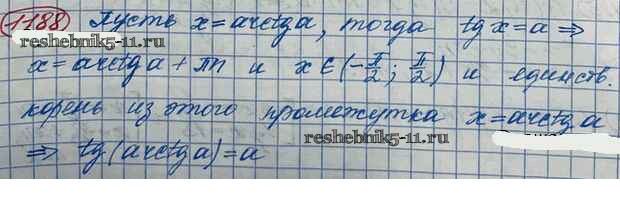 1188 Пусть x = arctg a, тогда tg x = a ⇒
reshebnik5-11.ru
x = arctg a + πn и x ∈ (-π/2; π/2) и единств.
корень из этого промежутка x = arctg a
reshebnik5-11.ru
⇒ tg(arctg a) = a